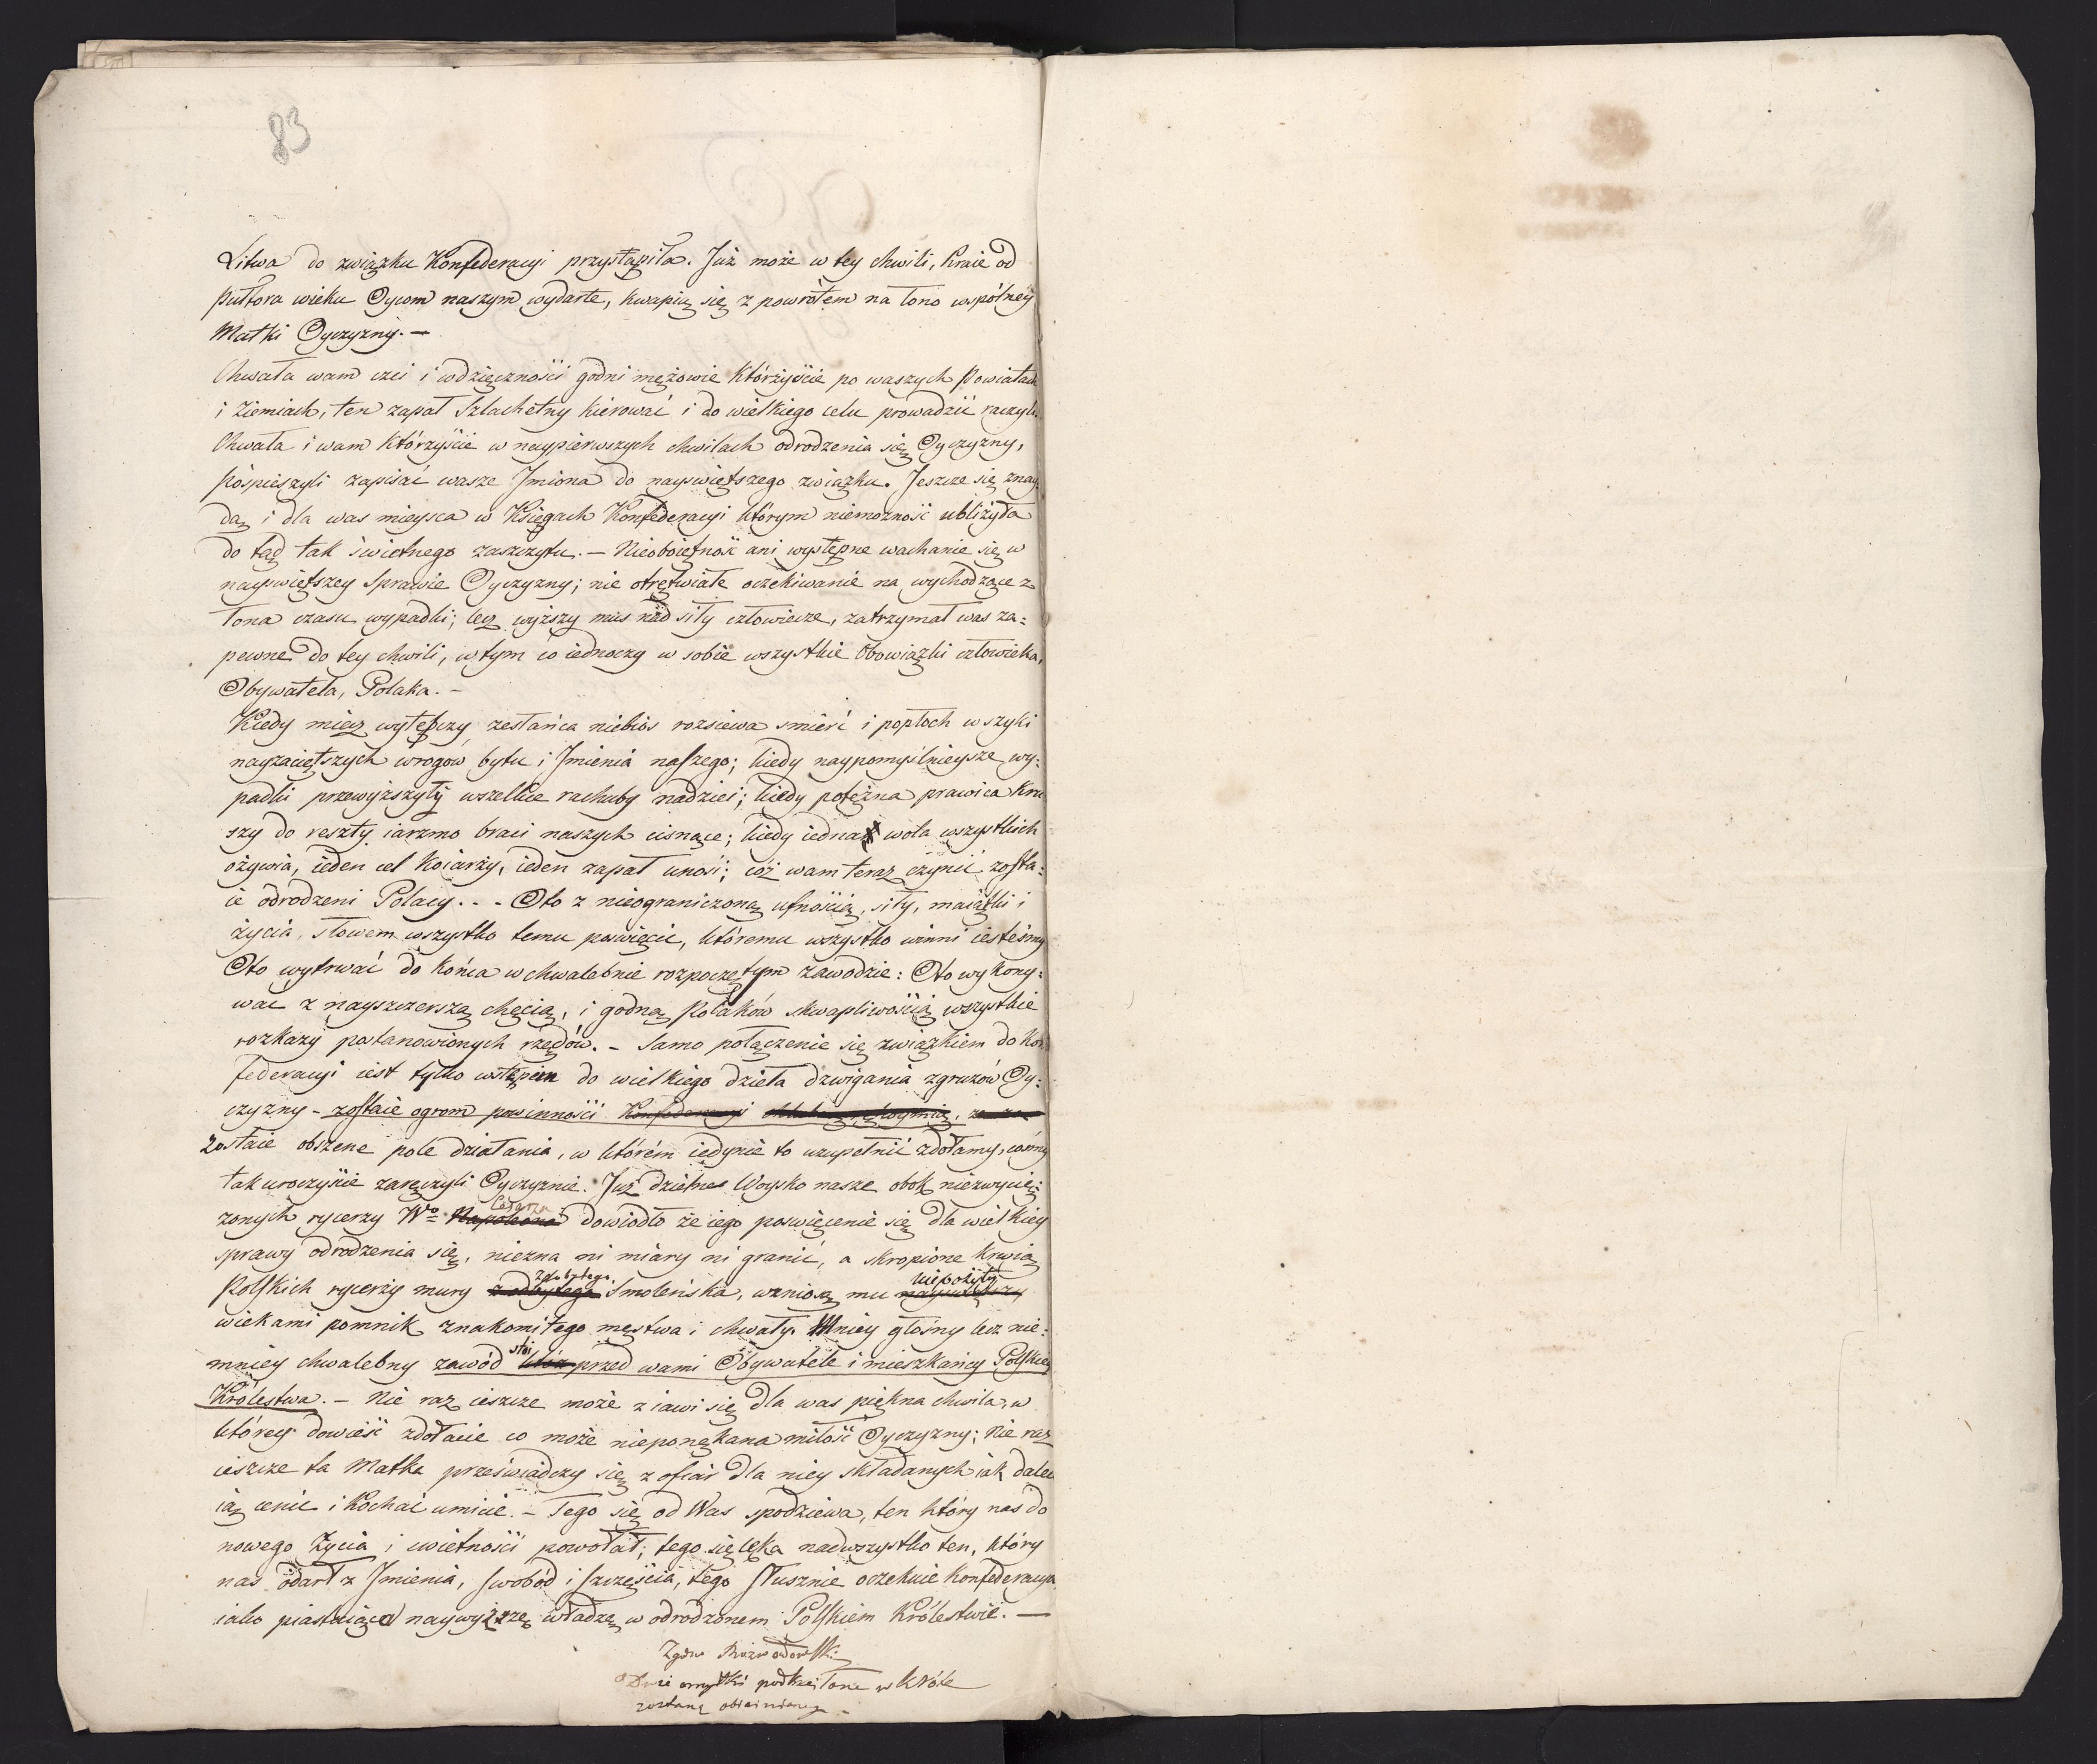 83
Litwa do związku Konfederacyi przystąpiła. Już może w tey chwili, kraie od
pułtora wieku Oycom naszym wydarte, kwapią się z powrotem na łono wspólney
Matki Oyczyzny. —
Chwała wam czci i wdzięczności godni mężowie którzyście po waszych Powiatach
i Ziemiach, ten zapał szlachetny kierować i do wielkiego celu prowadzić raczyli.
Chwała i wam którzyście w naypierwszych chwilach odrodzenia się Oyczyzny,
pośpieszyli zapisać wasze Imiona do nayświętszego związku. Jeszcze się znay
dą i dla was mieysca w Księgach Konfederacyi którym niemożność ubliżyła
do tąd tak świetnego zaszczytu. — Nieoboiętność ani występne wachanie się w
nayświętszey sprawie Oyczyzny; nie otrętwiałe oczekiwanie na wychodzące z
łona czasu wypadki; lecz wyższy mus nad siły człowiecze, zatrzymał was za=
pewne do tey chwili, w tym co iednoczy w sobie wszystkie obowiązki człowieka,
Obywatela, Polaka. —
Kiedy miecz wytępczy zesłańca niebios rozsiewa smierć i popłoch w szyki
nayzaciętszych wrogów bytu i Imienia naszego; kiedy naypomyślnieysze wy=
padki przewyższyły wszelkie rachuby nadziei; kiedy potężna prawica kru
szy do reszty iarzmo braci naszych cisnące; kiedy iedna wola wszystkich
ożywia, ieden cel koiarzy, ieden zapał unosi; cóż wam teraz czynić zosta=
ie odrodzeni Polacy... Oto z nieograniczoną ufnością, siły, maiątki i
życia, słowem wszystko temu poświęcić, któremu wszystko winni iesteśmy
Oto wytrwać do końca w chwalebnie rozpoczętym zawodzie: Oto wykony=
wać z nayszczerszą chęcią, i godną Polaków skwapliwością wszystkie
rozkazy postanowionych rządów. — Samo połączenie się związkiem do Kon
federacyi iest tylko wstępem do wielkiego dzieła dzwigania zgruzów Oy=
czyzny - zostaie ogrom powinności Konfederacyi
zostaie obszerne pole działania, w którém iedynie to uzupełnić zdołamy, cośmy
tak uroczyście zaręczyli Oyczyznie. Już dzielne Woysko nasze obok niezwycię=
Cesarza
żonych rycerzy Wo Napoleona dowiodło że iego poswięcenie się dla wielkiey
sprawy odrodzenia się, niezna ni miary ni granic, a skropione krwią
zdobytego niepożyty
Polskich rycerzy mury zodbytego Smoleńska, wzniosą mu
wiekami pomnik znakomitego męstwa i chwały. Mniey głośny lecz nie=
stoi
mniey chwalebny zawód przed wami Obywatele i mieszkańcy Polskiego
Królestwa. — Nie raz ieszcze może ziawi się dla was piękna chwila, w
którey dowieść zdołacie co może nieponękana miłość Oyczyzny; Nie raz
ieszcze ta Matka przeświadczy się z ofiar dla niey składanych iak dalece
ią cenić i kochać umiecie. — Tego się od Was spodziewa, ten który nas do
nowego życia i swietności powołał; tego się lęka nadwszystko ten, który
nas odarł z Imienia, swobód i szczęścia, tego słusznie oczekuie Konfederacya
iako piastuiąca naywyższą władzę w odrodzonem Polskiem Królestwie. —
podkreślone w
zostaną obiaśnione